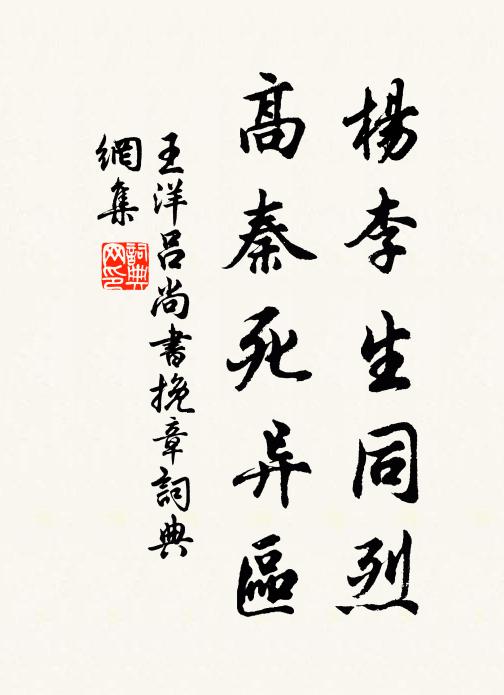 楊李生同烈
高秦死异區
王洋呂尚書挽章詞典
網集
詞典
网印